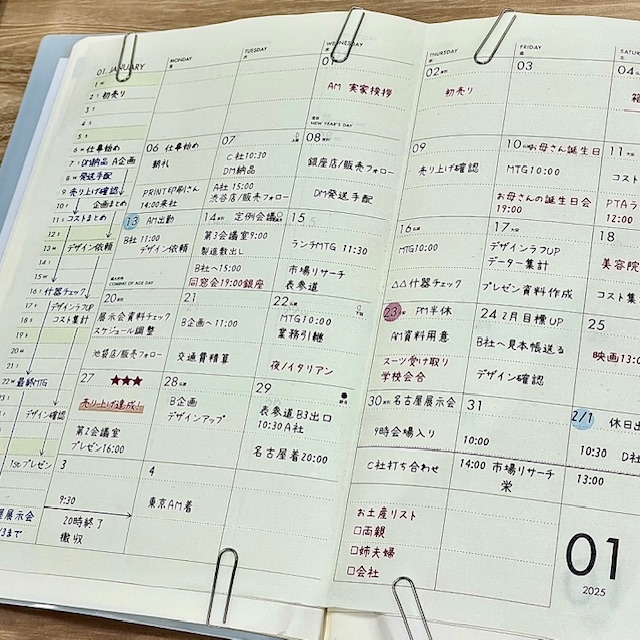 01. JANUARY
MONDAY
月
TUESDAY
火
WEDNESDAY
水
THURSDAY
木
FRIDAY
金
1
2 初売り
3
4
5
6 仕事始め
7 DM納品 A企画
8 発送手配
9 売り上げ確認
10 企画まとめ
11 コストまとめ
12
13 デザイン依頼
14
15
16 什器チェック
17 デザインラフUP
18 コスト集計
19
20
21
22 最終MTG
デザイン確認
プレゼン
展示会
3まで
01
AM 実家挨拶
NEW YEAR'S DAY
02
初売り
03
04
06 仕事始め
朝礼
PRINT印刷さん
14:00来社
07
C社10:30
DM納品
A社 15:00
渋谷店/販売フォロー
08
銀座店/販売フォロー
DM発送手配
09
売り上げ確認
10 お母さん誕生日
MTG10:00
お母さんの誕生日会
19:00
11
コスト
PTA
13 AM出勤
B社 11:00
デザイン依頼
COMING OF AGE DAY
14 定例会議
第3会議室9:00
製造数出し
B社へ15:00
同窓会19:00銀座
15
ランチMTG 11:30
市場リサーチ
表参道
16
MTG10:00
△△什器チェック
17
デザインラフUP
データー集計
プレゼン資料作成
18
美容院
コスト集
20
展示会資料チェック
スケジュール調整
池袋店/販売フォロー
21
B企画へ11:00
交通費精算
22
MTG10:00
業務引継
夜/イタリアン
23 PM半休
AM資料用意
スーツ受け取り
学校会合
24 2月目標UP
B社へ見本帳送る
デザイン確認
25
映画13:0
27 ★★★
売り上げ達成!
第2会議室
プレゼン16:00
28
B企画
デザインアップ
29
表参道B3出口
10:30 A社
名古屋着20:00
30 名古屋展示会
9時会場入り
C社打ち合わせ
31
10:00
14:00 市場リサーチ
栄
2/1 休日出
10:30
D社
13:00
3
9:30
20時終了
撤収
4
東京AM着
お土産リスト
□両親
□姉夫婦
□会社
01
2025